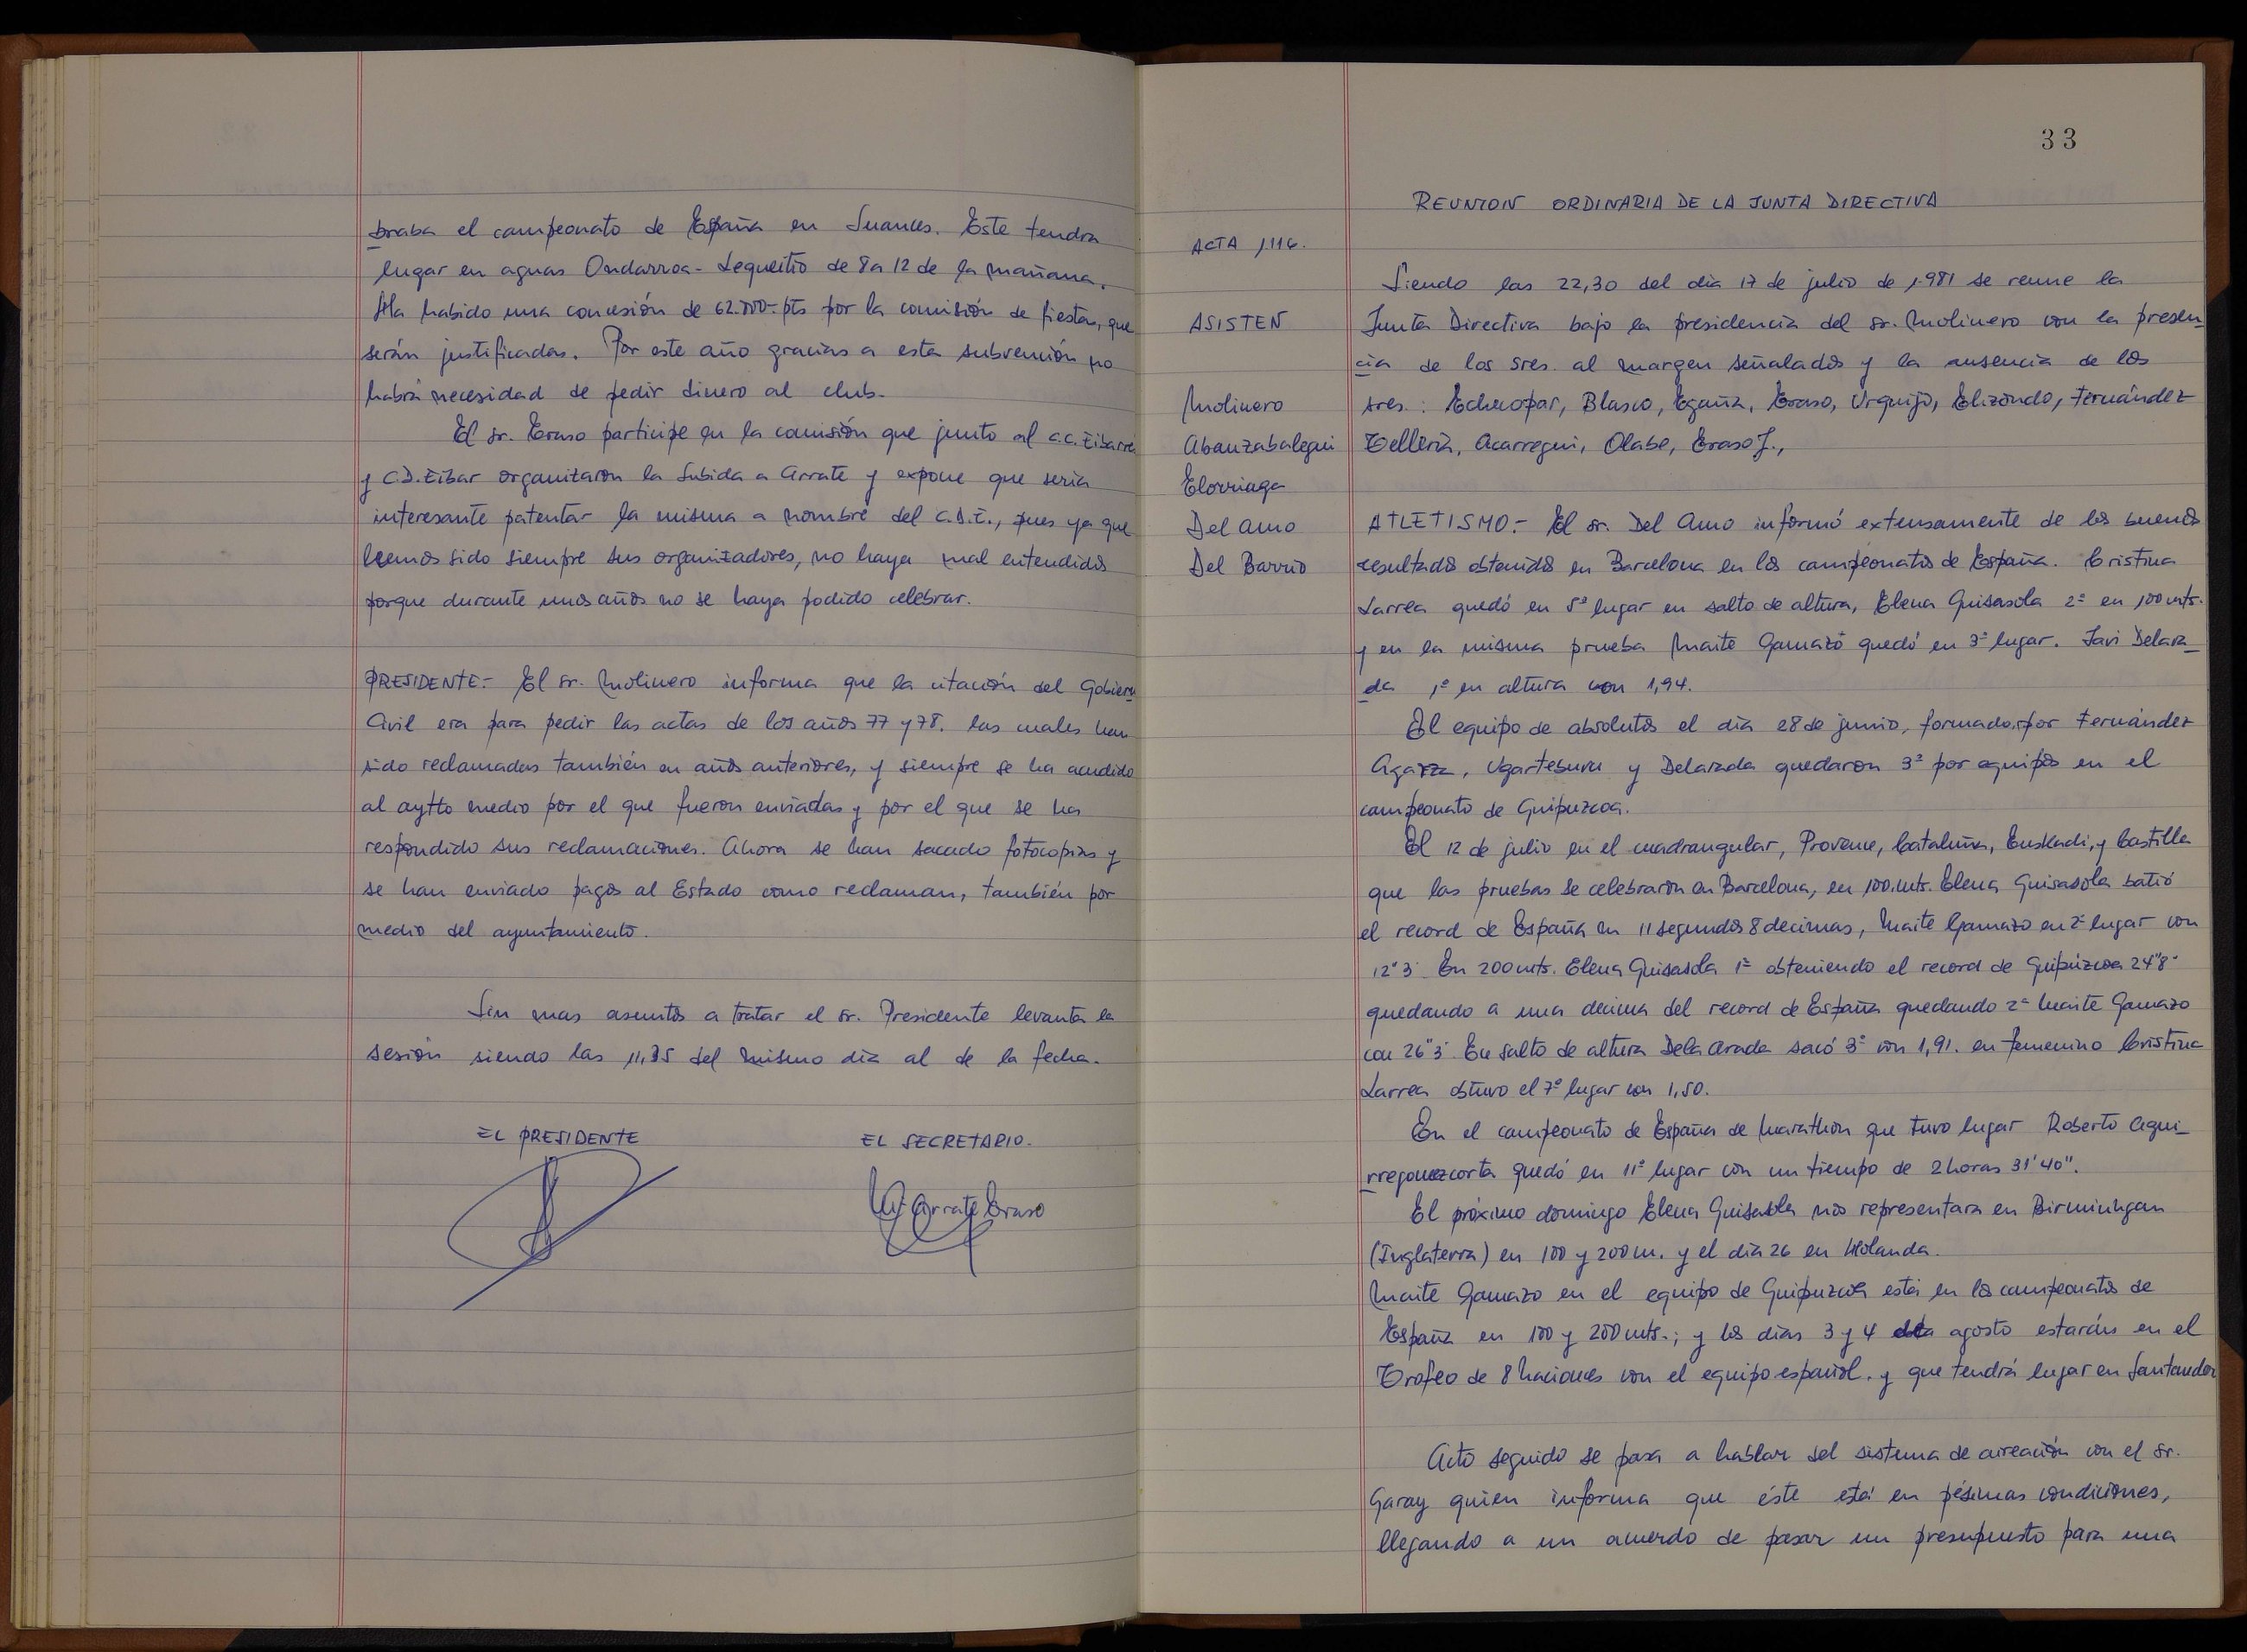 braba el campeonato de España en Suances. Este tendra
lugar en aguas Ondarroa-Lequeitio de 8 a 12 de la mañana.
Ha habido una concesión de 62.000.- pts por la comisión de fiestas, que
serán justificadas. Por este año gracias a esta subvención no
habrá necesidad de pedir dinero al club.
El sr. Eraso participe en la comisión que junto al C.C. Eibarre
y C.D. Eibar organizaron la Subida a Arrate y expone que seria
interesante patentar la misma a nombre del C.D.E., pues ya que
hemos sido siempre sus organizadores, no haya mal entendidos
porque durante unos años no se haya podido celebrar.
PRESIDENTE.- El sr. Molinero informa que la citación del Gobierno
Civil era para pedir las actas de los años 77 y 78. las cuales han
sido reclamadas también en años anteriores, y siempre se ha acudido
al aytto medio por el que fueron enviadas y por el que se ha
respondido sus reclamaciones. Ahora se han sacado fotocopias y
se han enviado pagos al Estado como reclaman, también por
medio del ayuntamiento.
Sin mas asuntos a tratar el sr. Presidente levanta la
sesión siendo las 11,35 del mismo dia al de la fecha.
EL PRESIDENTE EL SECRETARIO.
Mª Arrate Eraso
33
REUNION ORDINARIA DE LA JUNTA DIRECTIVA
ACTA 1.116.
ASISTEN
Molinero
Abanzabalegui
Elorriaga
Del Amo
Del Barrio
Siendo las 22,30 del dia 17 de julio de 1.981 se reune la
Junta Directiva bajo la presidencia del sr. Molinero con la presen_
cia de los sres. al margen señalados y la ausencia de los
sres.: Echeopar, Blasco, Egaña, Eraso, Urquijo, Elizondo, Fernández
Telleria, Acarregui, Olabe, Eraso J.,
ATLETISMO.- El sr. Del Amo informó extensamente de los buenos
resultados obtenidos en Barcelona en los campeonatos de España. Cristina
Larrea quedó en 5º lugar en salto de altura, Elena Guisasola 2ª en 100 mts.
y en la misma prueba Maite Gamazo quedó en 3º lugar. Javi Delara_
da 1º en altura con 1,94.
El equipo de absolutos el dia 28 de junio, formado por Fernández
Agarra, Ugarteburu y Delarada quedaron 3º por equipos en el
campeonato de Guipuzcoa.
El 12 de julio en el cuadrangular, Provence, Cataluña, Euskadi, y Castilla
que las pruebas se celebraron en Barcelona, en 100 mts. Elena Guisasola batió
el record de España en 11 segundos 8 decimas, Maite Gamazo en 2º lugar con
12"3. En 200 mts. Elena Guisasola 1ª obteniendo el record de Guipúzcoa 24"8
quedando a una decima del record de España quedando 2ª Maite Gamazo
con 26"3. En salto de altura Dela arada sacó 3º con 1,91. en femenino Cristina
Larrea obtuvo el 7º lugar con 1,50.
En el campeonato de España de Marathon que tuvo lugar Roberto Agui_
rregomezcorta quedó en 11º lugar con un tiempo de 2 horas 31'40".
El próximo domingo Elena Guisasola nos representara en Birminhgan
(Inglaterra) en 100 y 200 m. y el dia 26 en Holanda.
Maite Gamazo en el equipo de Guipuzcoa está en los campeonatos de
España en 100 y 200 mts.; y los dias 3 y 4 de agosto estarán en el
Trofeo de 8 Naciones con el equipo español. y que tendrá lugar en Santander
Acto seguido se pasa a hablar del sistema de aireación con el sr.
Garay quien informa que éste está en pésimas condiciones,
llegando a un acuerdo de pasar un presupuesto para una